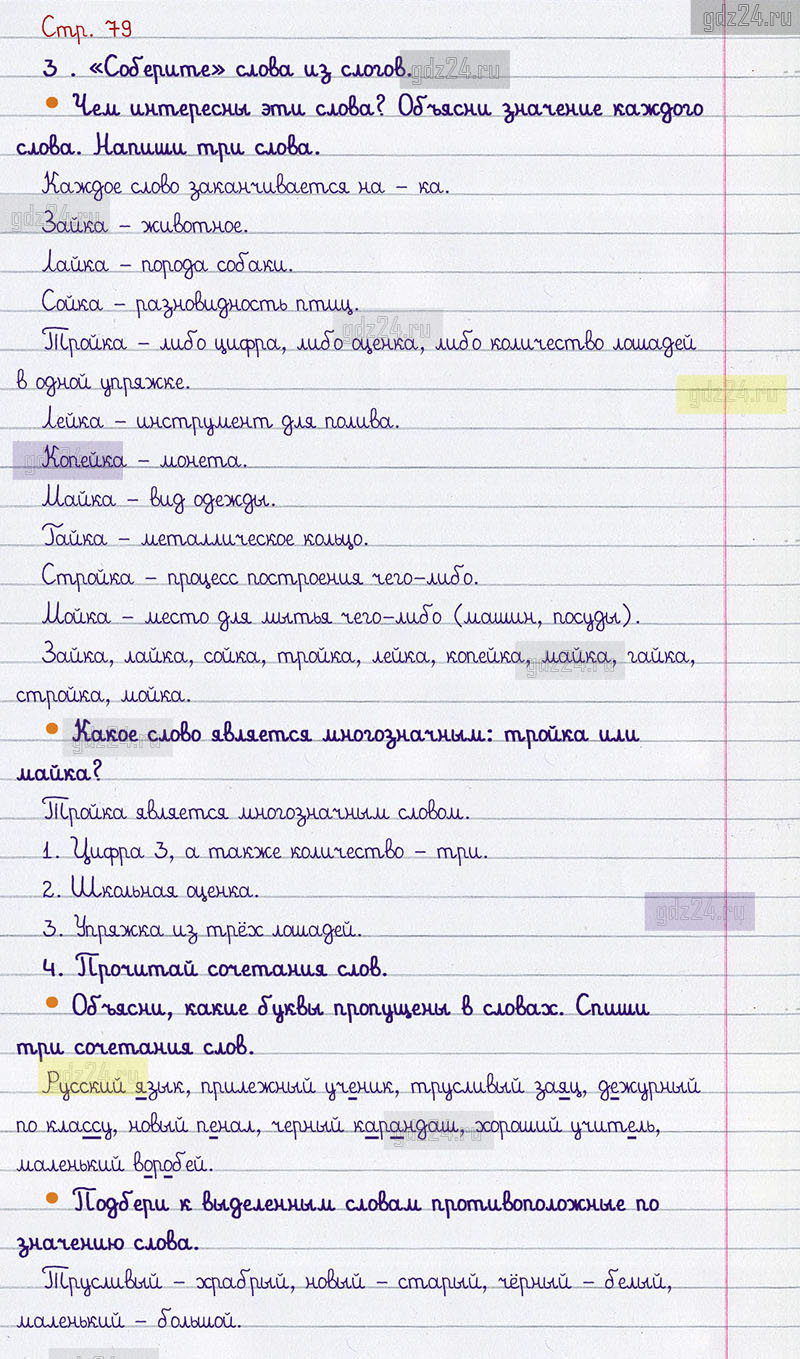 Стр. 79
gdz24.ru
3 . «Соберите» слова из слогов.
gdz24.ru
• Чем интересны эти слова? Объясни значение каждого
слова. Напиши три слова.
Каждое слово заканчивается на – ка.
gdz24.ru
Зайка – животное.
Лайка – порода собаки.
Сойка – разновидность птиц.
gdz24.ru
Тройка – либо цифра, либо оценка, либо количество лошадей
в одной упряжке.
gdz24.ru
Лейка – инструмент для полива.
Копейка – монета.
gdz24.ru
Майка – вид одежды.
Гайка – металлическое кольцо.
Стройка – процесс построения чего-либо.
Мойка – место для мытья чего-либо (машин, посуды).
Зайка, лайка, сойка, тройка, лейка, копейка, майка, гайка,
gdz24.ru
стройка, мойка.
• Какое слово является многозначным: тройка или
gdz24.ru
майка?
Тройка является многозначным словом.
1. Цифра 3, а также количество – три.
2. Школьная оценка.
gdz24.ru
3. Упряжка из трёх лошадей.
4. Прочитай сочетания слов.
• Объясни, какие буквы пропущены в словах. Спиши
три сочетания слов.
gdz24.ru
Русский язык, прилежный ученик, трусливый заяц, дежурный
по классу, новый пенал, черный карандаш, хороший учитель,
gdz24.ru
маленький воробей.
• Подбери к выделенным словам противоположные по
значению слова.
Трусливый – храбрый, новый – старый, чёрный – белый,
маленький – большой.